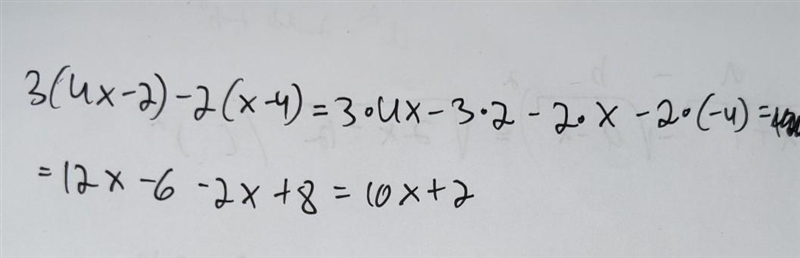 3(4x-2)-2(x-4)=3•4x-3•2-2•x-2•(-4)=
=12x-6-2x+8=10x+2